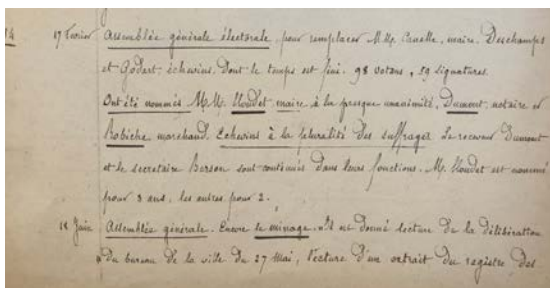 74 17 Février Assemblée générale électorale pour remplacer M.M. Canelle, maire, Deschamps
et Godart, échevins, dont le temps est fini. 98 votans, 59 signatures.
Ont été nommés M.M. Houdet maire à la presque unanimité, Dumont, notaire et
Robiche marchand, Echevins à la pluralité des suffrages. Le receveur Dumont
et le secretaire Berson sont continués dans leurs fonctions. M. Houdet est nommé
pour 3 ans, les autres pour 2.
18 Juin Assemblée générale. Encore le minage. Il est donné lecture de la délibération
du bureau de la ville du 27 Mai, lecture d'un extrait du registre des